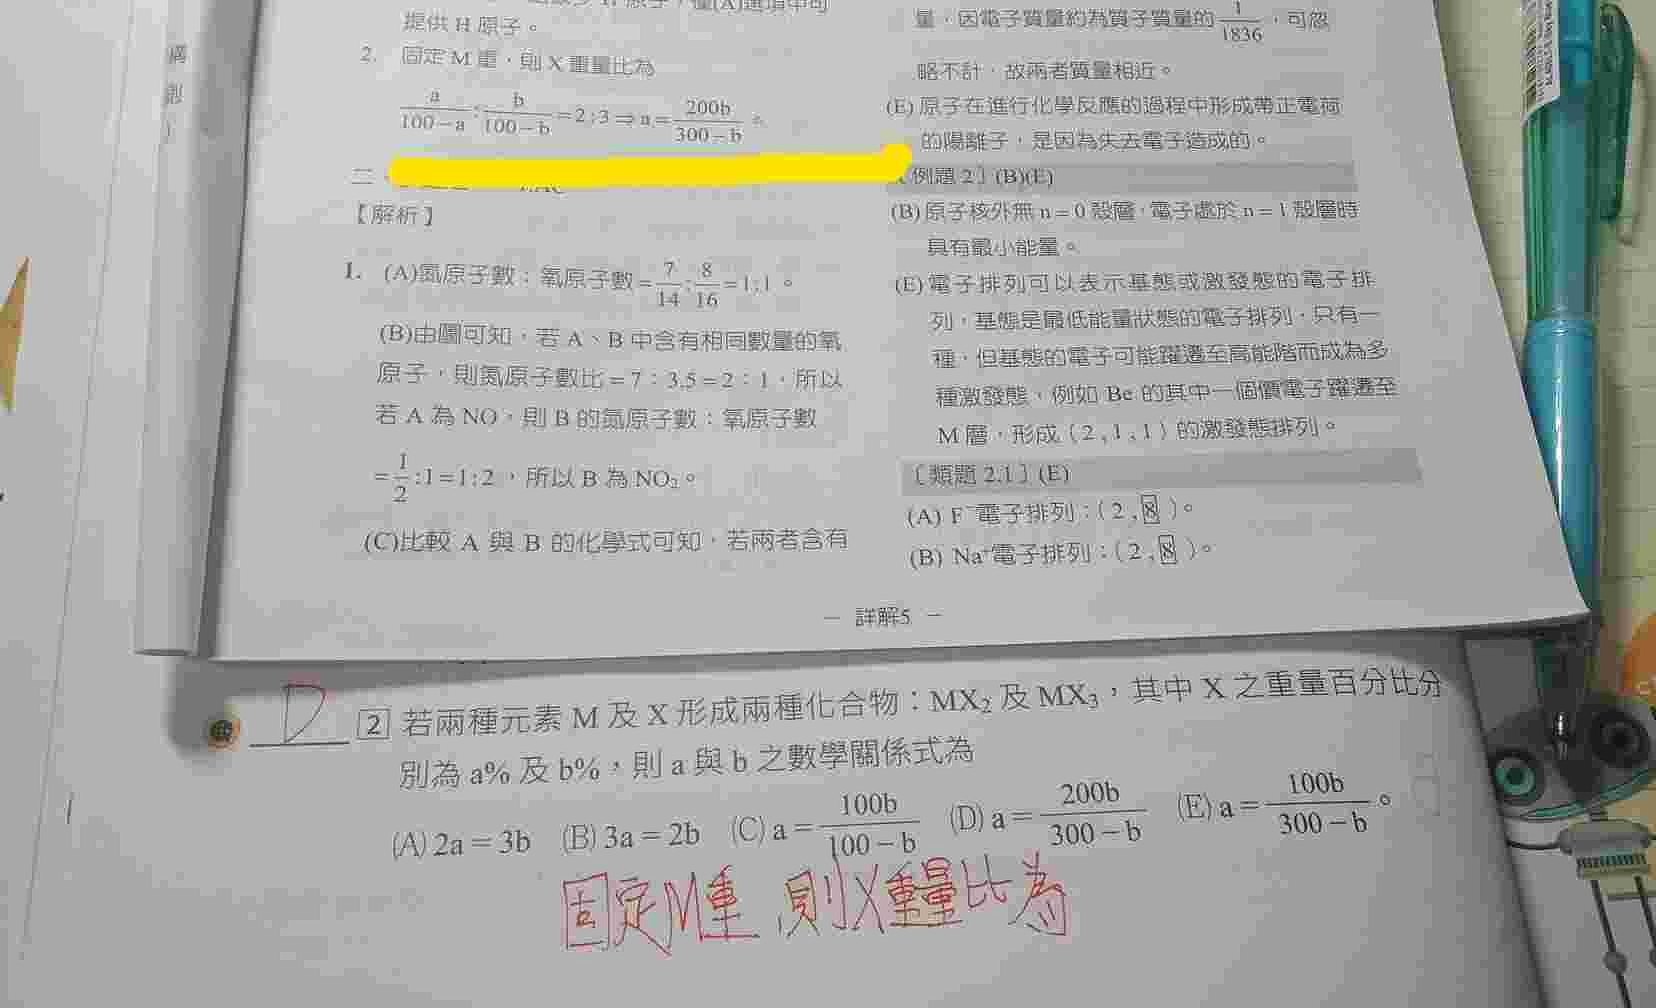 提供 H 原子。
2. 固定 M 重,則 X 重量比為
a/(100-a) : b/(100-b) = 2:3 ⇒ a = 200b/(300-b)。
二、
【解析】
1. (A)氮原子數:氧原子數 = 7/14 : 8/16 = 1:1。
(B)由圖可知,若 A、B 中含有相同數量的氧
原子,則氮原子數比 = 7:3.5 = 2:1,所以
若 A 為 NO,則 B 的氮原子數:氧原子數
= 1/2 : 1 = 1:2,所以 B 為 NO₂。
(C)比較 A 與 B 的化學式可知,若兩者含有
量,因電子質量約為質子質量的 1/1836,可忽
略不計,故兩者質量相近。
(E) 原子在進行化學反應的過程中形成帶正電荷
的陽離子,是因為失去電子造成的。
〔例題 2〕(B)(E)
(B) 原子核外無 n = 0 殼層,電子處於 n = 1 殼層時
具有最小能量。
(E) 電子排列可以表示基態或激發態的電子排
列,基態是最低能量狀態的電子排列,只有一
種,但基態的電子可能躍遷至高能階而成為多
種激發態,例如 Be 的其中一個價電子躍遷至
M 層,形成(2,1,1)的激發態排列。
〔類題 2.1〕(E)
(A) F⁻電子排列:(2,8)。
(B) Na⁺電子排列:(2,8)。
— 詳解5 —
D 2 若兩種元素 M 及 X 形成兩種化合物:MX₂ 及 MX₃,其中 X 之重量百分比分
別為 a% 及 b%,則 a 與 b 之數學關係式為
(A) 2a = 3b (B) 3a = 2b (C) a = 100b/(100-b) (D) a = 200b/(300-b) (E) a = 100b/(300-b)。
固定M重,則X重量比為